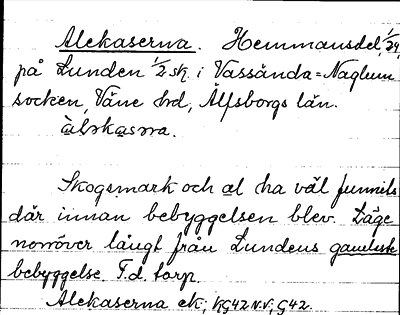 Alekaserna. Hemmansdel, 1/24,
på Lunden 1/2 sk. i Vassända=Naglum
socken, Väne hrd, Älfsborgs län.
Skogsmark och al ha väl funnits
där innan bebyggelsen blev. Läge
norröver långt från Lundens gamla
bebyggelse. F.d. torp.
Alekaserna ek;